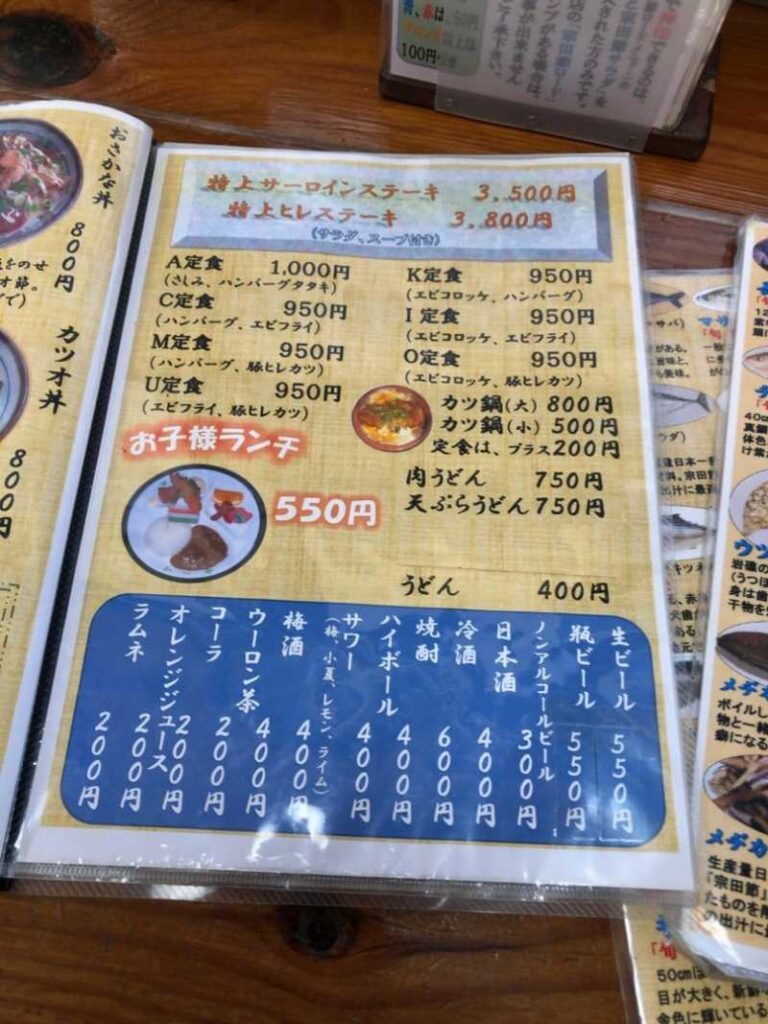 おさかな丼
800円
カツオ丼
800円
特上サーロインステーキ 3,500円
特上ヒレステーキ 3,800円
(サラダ、スープ付き)
A定食 1,000円
(さしみ、ハンバーグタタキ)
C定食 950円
(ハンバーグ、エビフライ)
M定食 950円
(ハンバーグ、豚ヒレカツ)
U定食 950円
(エビフライ、豚ヒレカツ)
お子様ランチ
550円
K定食 950円
(エビコロッケ、ハンバーグ)
I定食 950円
(エビコロッケ、エビフライ)
O定食 950円
(エビコロッケ、豚ヒレカツ)
カツ鍋(大) 800円
カツ鍋(小) 500円
定食は、プラス200円
肉うどん 750円
天ぷらうどん 750円
うどん 400円
生ビール 550円
瓶ビール 550円
ノンアルコールビール 300円
日本酒 400円
冷酒 600円
焼酎 400円
ハイボール 400円
サワー 400円
(梅、小夏、レモン、ライム)
梅酒 400円
ウーロン茶 200円
コーラ 200円
オレンジジュース 200円
ラムネ 200円